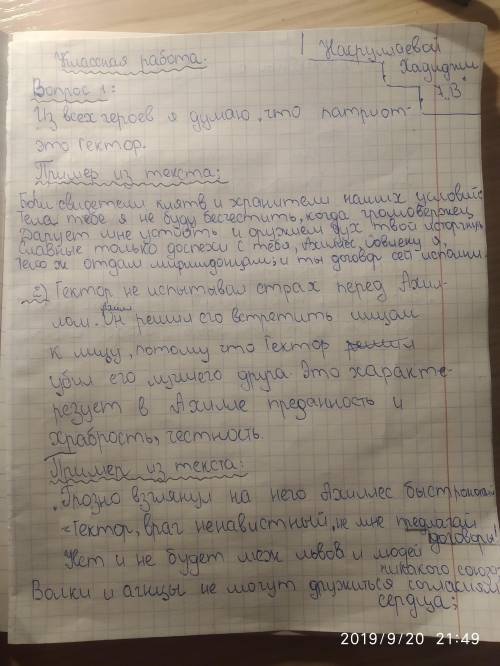 Классная работа.
Насруллаевой
Хадиджи
7 "В"
Вопрос 1:
Из всех героев я думаю, что патриот-
это Гектор.
Пример из текста:
Боги свидетели клятв и хранители наших условий:
Тела тебе я не буду бесчестить, когда громовержец
Дарует мне устоять и оружием дух твой исторгнуть
Славные только доспехи с тебя, Ахиллес, совлеку я,
Тело ж отдам мирмидонцам; и ты договор сей исполни.
2) Гектор не испытывал страх перед Ахил-
лом. Он решил его встретить лицом
к лицу, потому что Гектор
убил его лучшего друга. Это характе-
резует в Ахилле преданность и
храбрость, честность.
Пример из текста:
Грозно взглянул на него Ахиллес быстроногий
«Гектор, враг ненавистный, не мне предлагай
договоры!
Нет и не будет меж львов и людей
никакого союза
Волки и агнцы не могут дружиться согласием
сердца;
2019/9/20 21:49